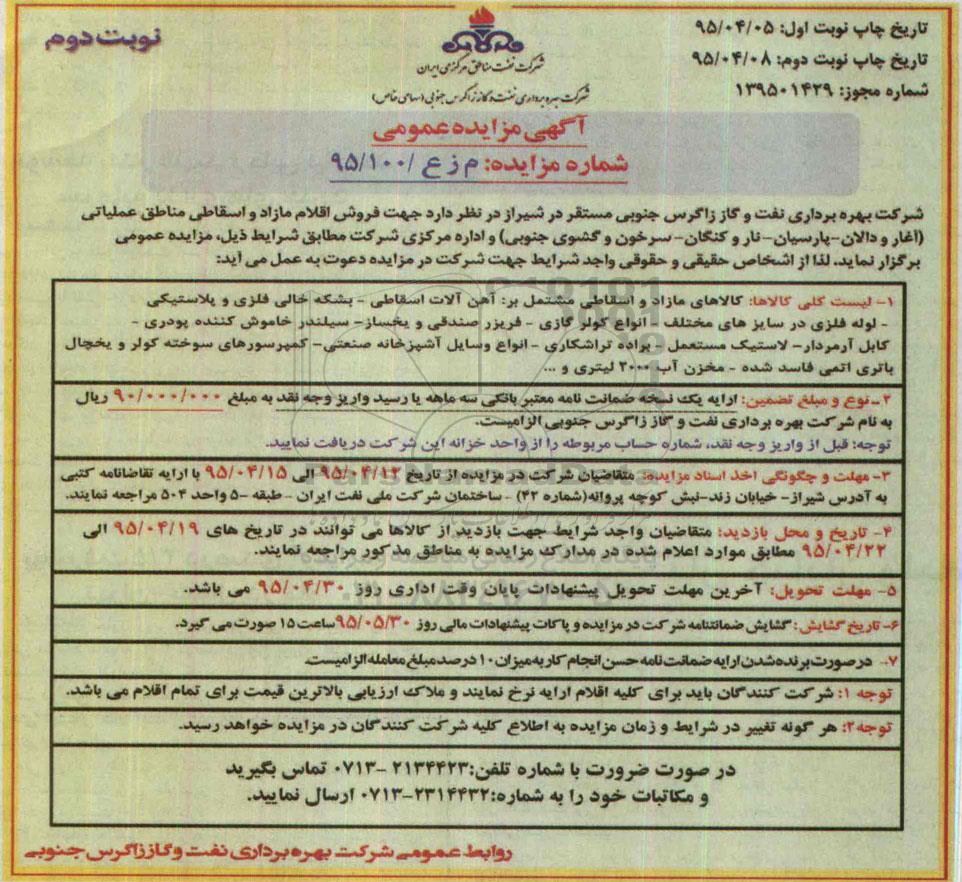 تاریخ چاپ نوبت اول: ۹۵/۰۴/۰۵
تاریخ چاپ نوبت دوم: ۹۵/۰۴/۰۸
شماره مجوز: ۱۳۹۵۰۱۴۲۹
نوبت دوم
شرکت نفت مناطق مرکزی ایران
شرکت بهره برداری نفت و گاز زاگرس جنوبی (سهامی خاص)
آگهی مزایده عمومی
شماره مزایده: م ز ع /۹۵/۱۰۰
شرکت بهره برداری نفت و گاز زاگرس جنوبی مستقر در شیراز در نظر دارد جهت فروش اقلام مازاد و اسقاطی مناطق عملیاتی
(آغار و دالان-پارسیان-نار و کنگان-سرخون و گشوی جنوبی) و اداره مرکزی شرکت مطابق شرایط ذیل، مزایده عمومی
برگزار نماید. لذا از اشخاص حقیقی و حقوقی واجد شرایط جهت شرکت در مزایده دعوت به عمل می آید:
۱- لیست کلی کالاها: کالاهای مازاد و اسقاطی مشتمل بر: آهن آلات اسقاطی - بشکه خالی فلزی و پلاستیکی
- لوله فلزی در سایز های مختلف - انواع کولر گازی - فریزر صندقی و یخساز- سیلندر خاموش کننده پودری -
کابل آرمردار- لاستیک مستعمل - براده تراشکاری - انواع وسایل آشپزخانه صنعتی- کمپرسورهای سوخته کولر و یخچال
باتری اتمی فاسد شده - مخزن آب ۲۰۰۰ لیتری و ...
۲- نوع و مبلغ تضمین: ارایه یک نسخه ضمانت نامه معتبر بانکی سه ماهه یا رسید واریز وجه نقد به مبلغ ۹۰/۰۰۰/۰۰۰ ریال
به نام شرکت بهره برداری نفت و گاز زاگرس جنوبی الزامیست.
توجه: قبل از واریز وجه نقد، شماره حساب مربوطه را از واحد خزانه این شرکت دریافت نمایید.
۳- مهلت و چگونگی اخذ اسناد مزایده: متقاضیان شرکت در مزایده از تاریخ ۹۵/۰۴/۱۲ الی ۹۵/۰۴/۱۵ با ارایه تقاضانامه کتبی
به آدرس شیراز- خیابان زند-نبش کوچه پروانه(شماره ۴۲) - ساختمان شرکت ملی نفت ایران - طبقه ۵- واحد ۵۰۴ مراجعه نمایند.
۴- تاریخ و محل بازدید: متقاضیان واجد شرایط جهت بازدید از کالاها می توانند در تاریخ های ۹۵/۰۴/۱۹ الی
۹۵/۰۴/۲۲ مطابق موارد اعلام شده در مدارک مزایده به مناطق مذکور مراجعه نمایند.
۵- مهلت تحویل: آخرین مهلت تحویل پیشنهادات پایان وقت اداری روز ۹۵/۰۴/۳۰ می باشد.
۶- تاریخ گشایش: گشایش ضمانتنامه شرکت در مزایده و پاکات پیشنهادات مالی روز ۹۵/۰۵/۳۰ ساعت ۱۵ صورت می گیرد.
۷- در صورت برنده شدن ارایه ضمانت نامه حسن انجام کار به میزان ۱۰ درصد مبلغ معامله الزامیست.
توجه ۱: شرکت کنندگان باید برای کلیه اقلام ارایه نرخ نمایند و ملاک ارزیابی بالاترین قیمت برای تمام اقلام می باشد.
توجه۲: هر گونه تغییر در شرایط و زمان مزایده به اطلاع کلیه شرکت کنندگان در مزایده خواهد رسید.
در صورت ضرورت با شماره تلفن:۲۱۳۴۴۲۳-۰۷۱۳ تماس بگیرید
و مکاتبات خود را به شماره:۲۳۱۴۴۳۲-۰۷۱۳ ارسال نمایید.
روابط عمومی شرکت بهره برداری نفت و گاز زاگرس جنوبی